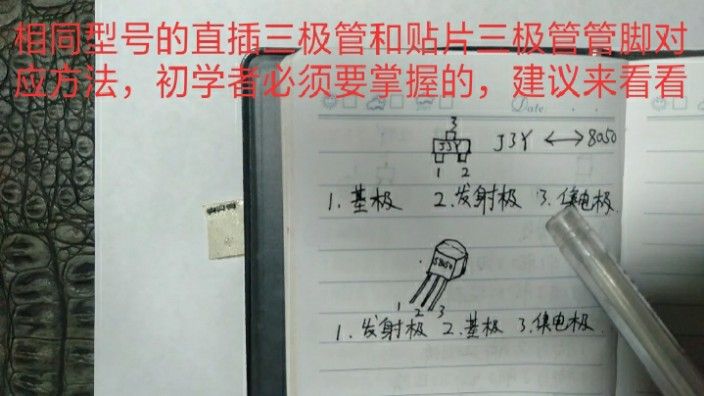 相同型号的直插三极管和贴片三极管管脚对
应方法，初学者必须要掌握的，建议来看看
Date:
3
J3Y
J3Y ↔ 8050
1 2
1.基极 2.发射极 3.集电极.
S8050
1 2 3
1.发射极 2.基极 3.集电极.